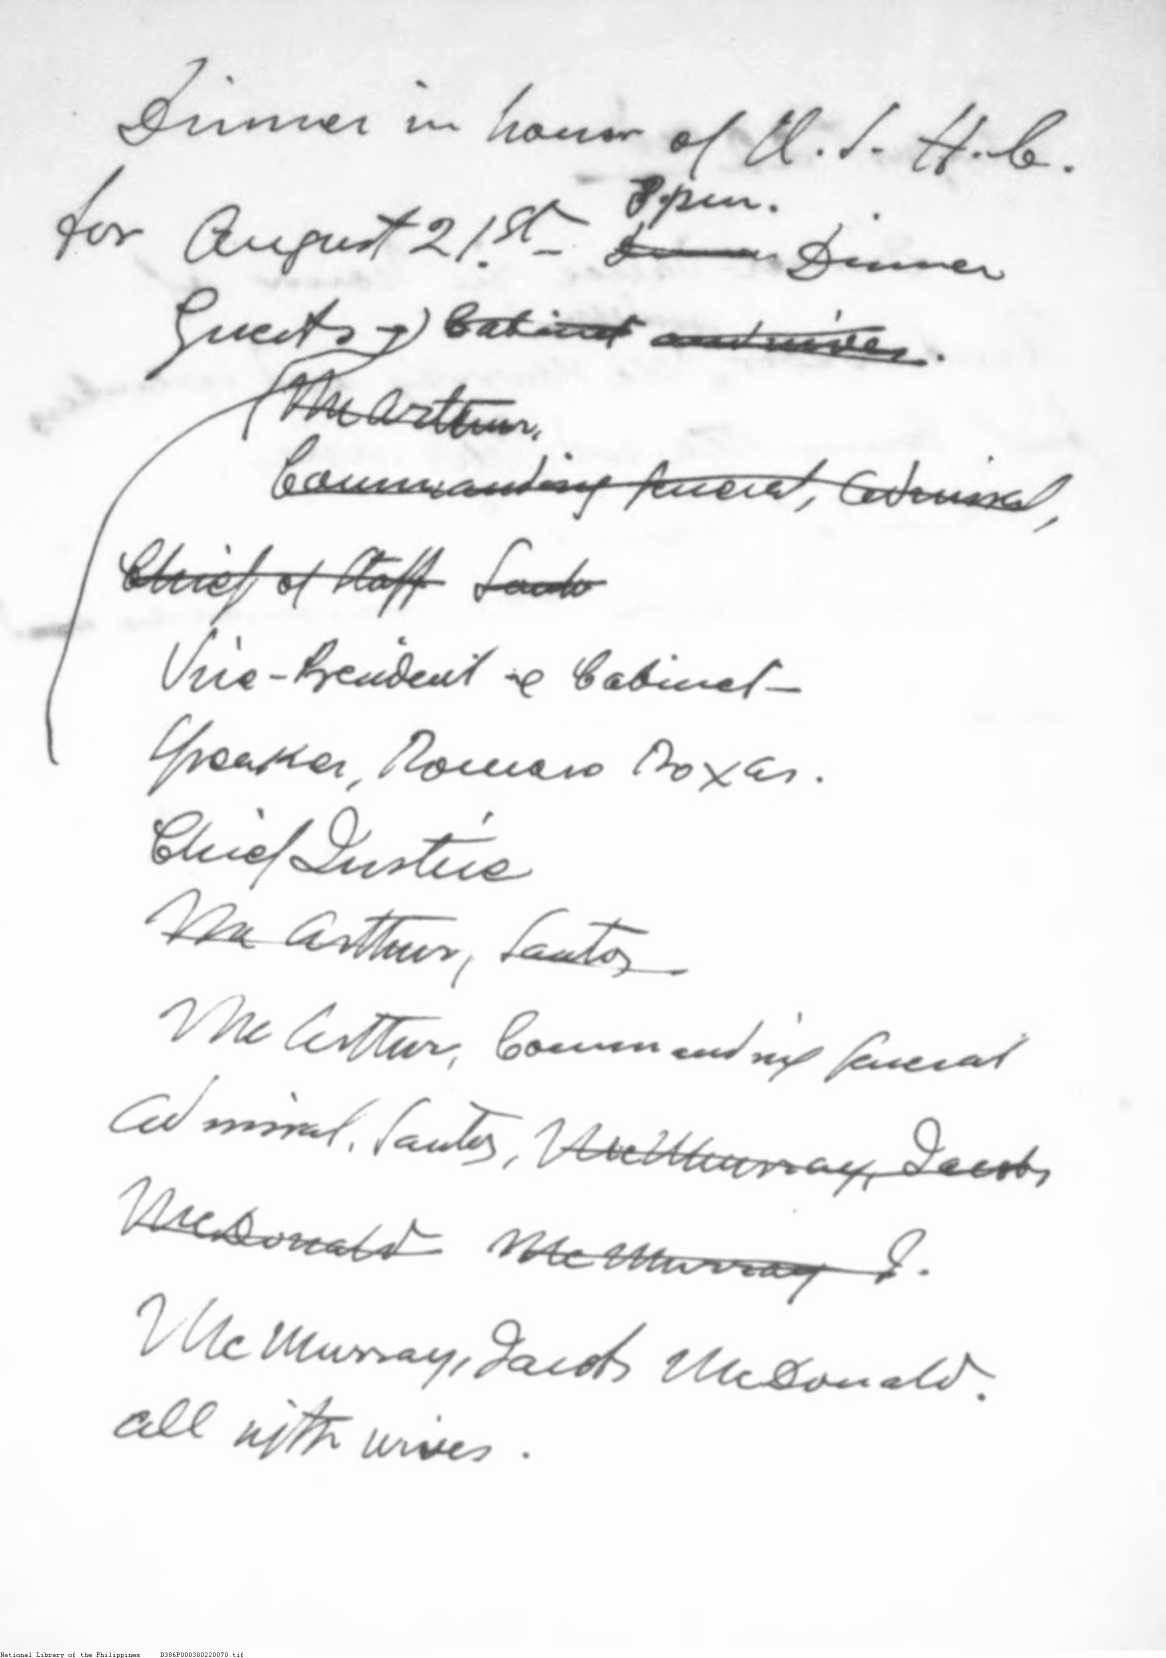 Dinner in honor of U.S. H.C.
8 p.m.
for August 21st - Dinner Dinner
Guests Cabinet and wives.
McArthur,
Commanding General, Admiral,
Chief of Staff Santo
Vice-President & Cabinet -
Speaker, Romero Roxas.
Chief Justice
Mc Arthur, Santos
Mc Arthur, Commanding General
Admiral. Santos, McMurray, Jacobs
McDonald McMurray J.
McMurray, Jacobs McDonald.
all with wives.
National Library of the Philippines D386P000380220070.tif